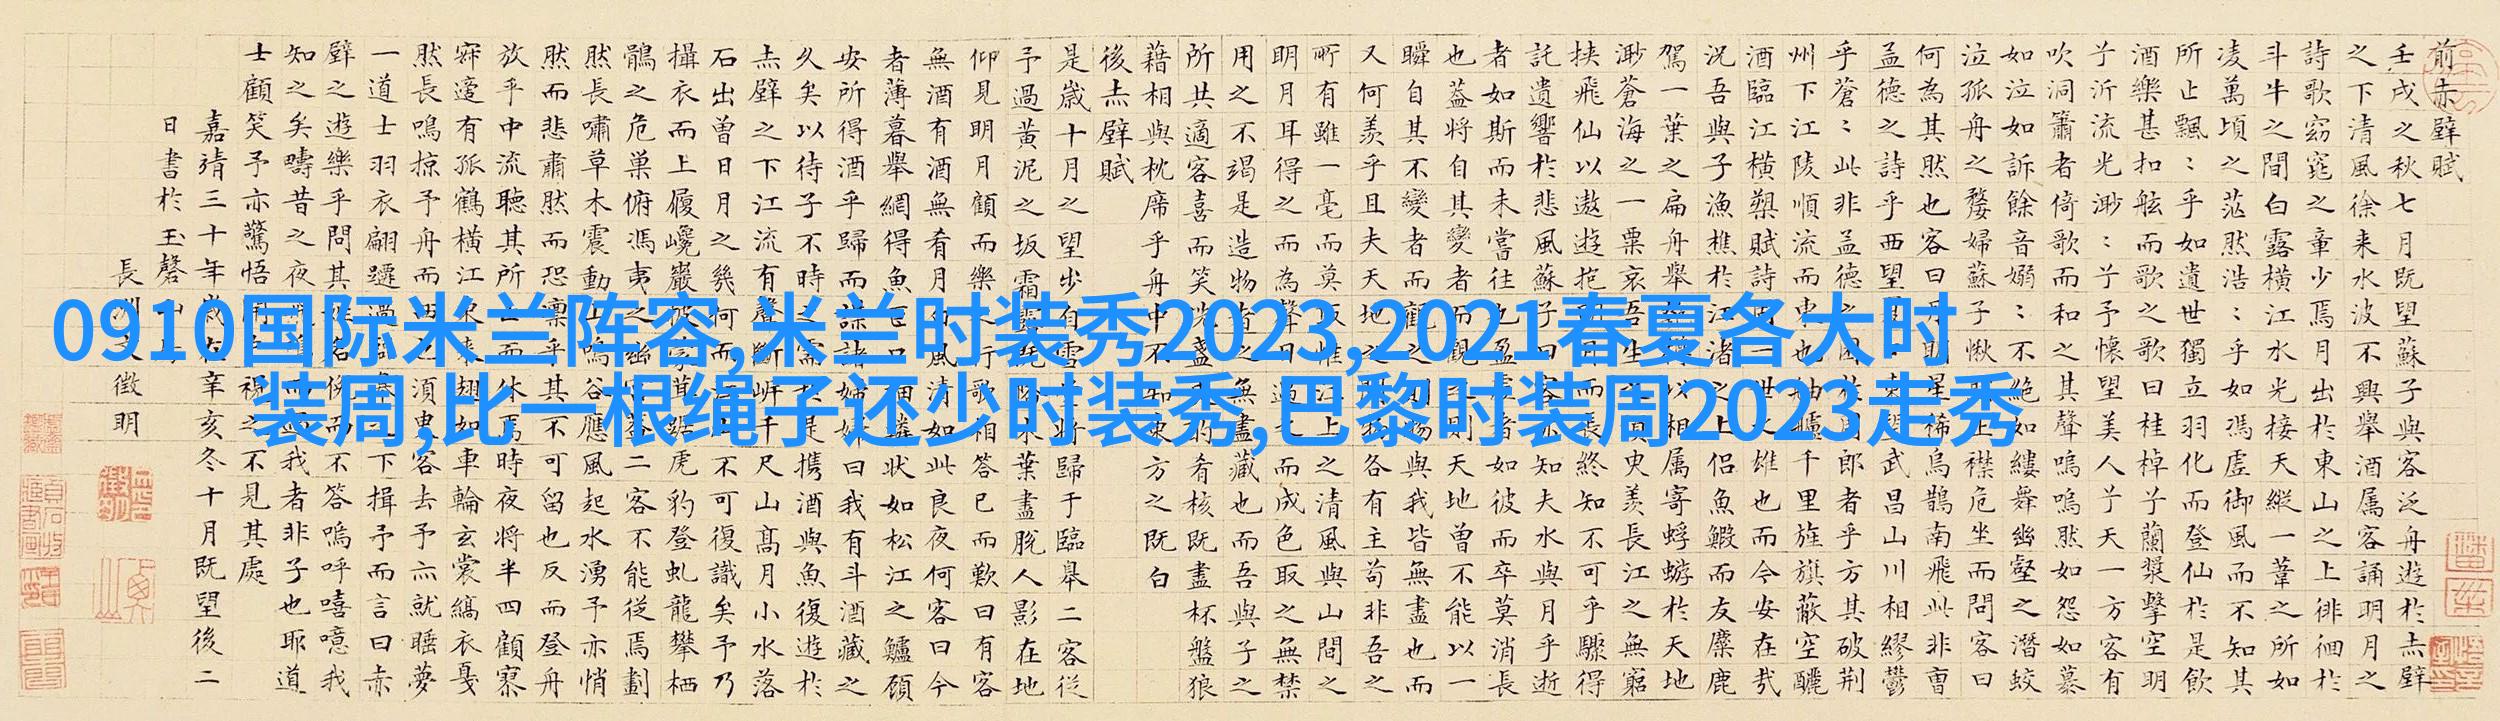 前赤壁賦
壬戌之秋七月既望蘇子與客泛舟遊於赤壁
之下清風徐来水波不興舉酒属客誦明月之
詩歌窈窕之章少焉月出於東山之上徘徊於
斗牛之間白露橫江水光接天縱一葦之所如
凌萬頃之茫然浩:乎如馮虛御風而不知其
所止飄:乎如遺世獨立羽化而登仙於是飲
酒樂甚扣舷而歌之歌曰桂棹兮蘭槳擊空明
兮泝流光渺:兮予懷望美人兮天一方客有
吹洞簫者倚歌而和之其聲嗚嗚然如怨如慕
如泣如訴餘音嫋:不絕如縷舞幽壑之潛蛟
泣孤舟之嫠婦蘇子愀然正襟危坐而問客曰
何為其然也客曰月明星稀烏鵲南飛此非曹
孟德之詩乎西望東望武昌山川相繆鬱
乎蒼:此非孟德之困於周郎者乎方其破荆
州下江陵順流而東也舳艫千里旌旗蔽空釃
酒臨江橫槊賦詩固一世之雄也而今安在哉
況吾與子漁樵於江渚之上侶魚鰕而友麋鹿
駕一葉之扁舟舉以相属寄蜉蝣於天地
渺蒼海之一粟哀吾生之須臾羨長江之無窮
挾飛仙以遨遊抱明月而長終知不可乎驟得
託遺響於悲風蘇子曰客亦知夫水與月乎逝
者如斯而未嘗往也盈虛者如彼而卒莫消長
也葢將自其變者而觀之則天地曾不能以一
瞬自其不變者而觀之則物與我皆無盡也而
又何羨乎且夫天地之物各有主苟非吾之
所有雖一毫而莫取惟江上之清風與山間之
明月耳得之而為聲目遇之而成色取之無禁
用之不竭是造物者之無盡藏也而吾與子之
所共適客喜而笑洗盞更酌肴核既盡杯盤狼
藉相與枕席乎舟中不知東方之既白
後赤壁賦
是歲十月之望步自雪堂將歸于臨皋二客從
予過黃泥之坂霜露既降木葉盡脫人影在地
仰見明月顧而樂之行歌相答已而歎曰有客
無酒有酒無肴月白風清如此良夜何客曰今
者薄暮舉網得魚巨口細鱗狀如松江之鱸顧
安所得酒乎歸而謀諸婦婦曰我有斗酒藏之
久矣以待子不時之須於是攜酒與魚復遊於
赤壁之下江流有聲斷岸千尺山高月小水落
石出曾日月之幾何而江山不可復識矣予乃
攝衣而上履巉巖披蒙茸踞虎豹登虬龍攀栖
鶻之危巢俯馮夷之幽宮葢二客不能從焉劃
然長嘯草木震動山鳴谷應風起水湧予亦悄
然而悲肅然而恐凛乎其不可留也反而登舟
放乎中流聽其所止而休焉時夜將半四顧寂
寥適有孤鶴橫江東来翅如車輪玄裳縞衣戛
然長鳴掠予舟而西也須臾客去予亦就睡夢
一道士羽衣翩躚過臨皋之下揖予而言曰赤
壁之遊樂乎問其姓名俛而不答嗚呼噫嘻我
知之矣疇昔之夜飛鳴而過我者非子也耶道
士顧笑予亦驚悟開戶視之不見其處
嘉靖三十年歲在辛亥冬十月既望後二
日書於玉磬山房
長洲文徵明
0910国际米兰阵容,米兰时装秀2023,2021春夏各大时
装周,比一根绳子还少时装秀,巴黎时装周2023走秀